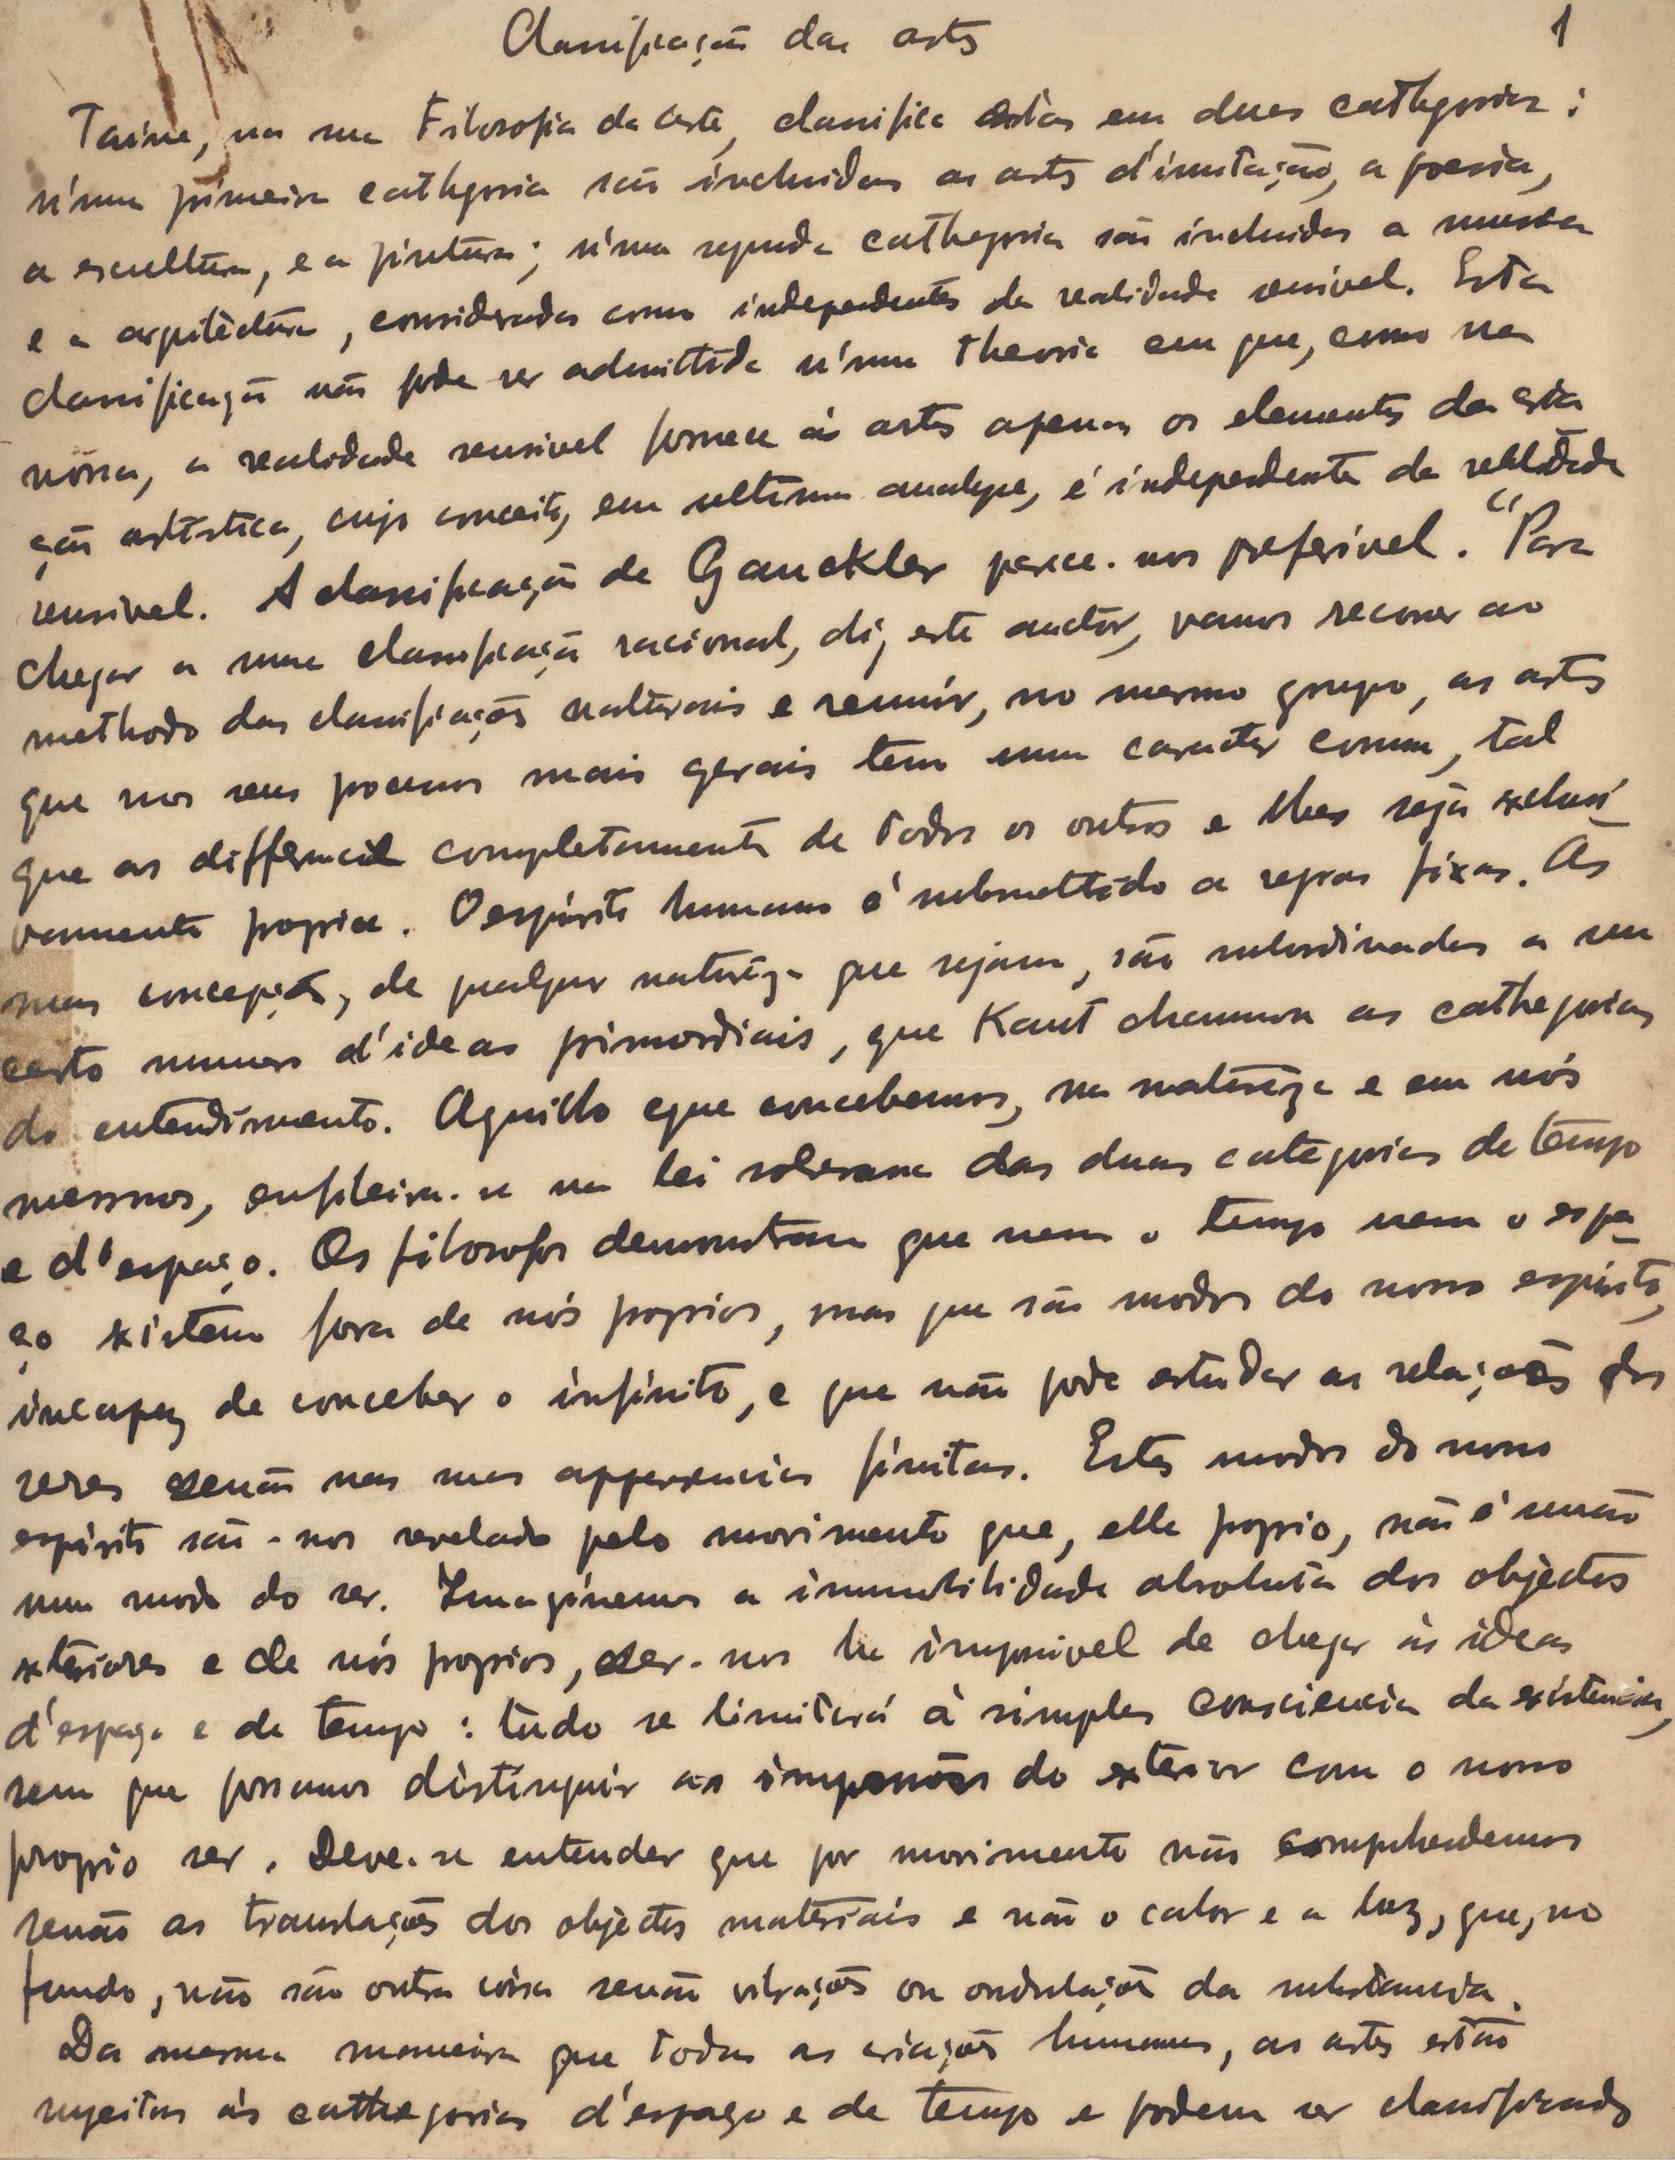 Classificação das artes
1
Taine, na sua Filosofia da Arte, classifica estas em duas cathegorias:
n'uma primeira cathegoria são incluidas as artes d'imitação, a poesia,
a escultura, e a pintura; n'uma segunda cathegoria são incluidas a musica
e a arquitectura, consideradas como independentes da realidade sensivel. Esta
classificação não pode ser admittida n'uma theoria em que, como na
nóssa, a realidade sensivel fornece ás artes apenas os elementos da cria
ção artística, cujo conceito, em ultima analyse, é independente da realidade
sensivel. A classificação de Gauckler parece-nos preferivel. "Para
chegar a uma classificação racional, diz este auctor, vamos recorrer ao
methodo das classificações naturais e reunir, no mesmo grupo, as artes
que nos seus processos mais gerais tem um caracter comum, tal
que as differencie completamente de todos os outros e lhes seja exclusi-
vamente proprio. O espirito humano é submettido a regras fixas. As
suas concepções, de qualquer natureza que sejam, são subordinadas a um
certo numero d'ideas primordiais, que Kant chamou as cathegorias
do entendimento. Aquillo que concebemos, na natureza e em nós
mesmos, enfileira-se na lei soberana das duas categorias de tempo
e d'espaço. Os filosofos demonstram que nem o tempo nem o espa-
ço existem fora de nós proprios, mas que são modos do nosso espirito,
incapaz de conceber o infinito, e que não pode estudar as relações dos
seres senão nas suas apparencias finitas. Estes modos do nosso
espirito são-nos revelado pelo movimento que, elle proprio, não é senão
um modo do ser. Imaginemos a immobilidade absoluta dos objectos
exteriores e de nós proprios, ser-nos ha impossivel de chegar ás ideas
d'espaço e de tempo: tudo se limitará á simples consciencia da existencia,
sem que possamos distinguir as impressões do exterior com o nosso
proprio ser. Deve-se entender que por movimento não comprehendemos
senão as translações dos objectos materiais e não o calor e a luz, que, no
fundo, não são outra coisa senão vibrações ou ondulações da substancia.
Da mesma maneira que todas as criações humanas, as artes estão
sugeitas ás cathegorias d'espaço e de tempo e podem ser classificadas